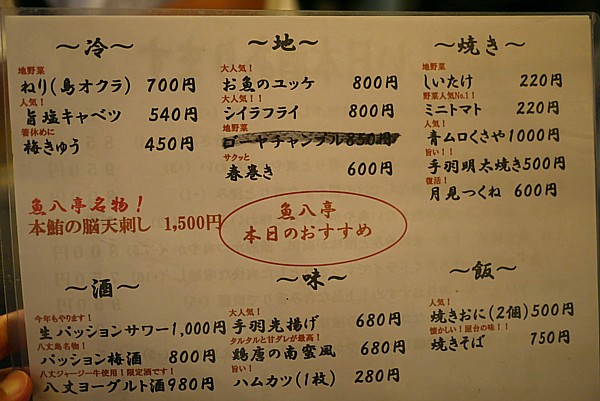 ～冷～
地野菜
ねり(島オクラ) 700円
人気！
旨塩キャベツ 540円
箸休めに
梅きゅう 450円
～地～
大人気！
お魚のユッケ 800円
大人気！！
シイラフライ 800円
地野菜
ゴーヤチャンプル 850円
サクッと
春巻き 600円
～焼き～
地野菜
しいたけ 220円
野菜人気No.1！
ミニトマト 220円
人気！
青ムロくさや 1000円
旨い！！
手羽明太焼き 500円
復活！
月見つくね 600円
魚八亭名物！
本鮪の脳天刺し 1,500円
魚八亭
本日のおすすめ
～酒～
今年もやります！
生パッションサワー 1,000円
八丈島名物！
パッション梅酒 800円
八丈ジャージー牛使用！限定酒です！
八丈ヨーグルト酒 980円
～味～
大人気！
手羽先揚げ 680円
タルタルと甘ダレが最高！
鶏唐の南蛮風 680円
旨い！
ハムカツ(1枚) 280円
～飯～
人気！
焼きおに(2個) 500円
懐かしい！屋台の味！！
焼きそば 750円